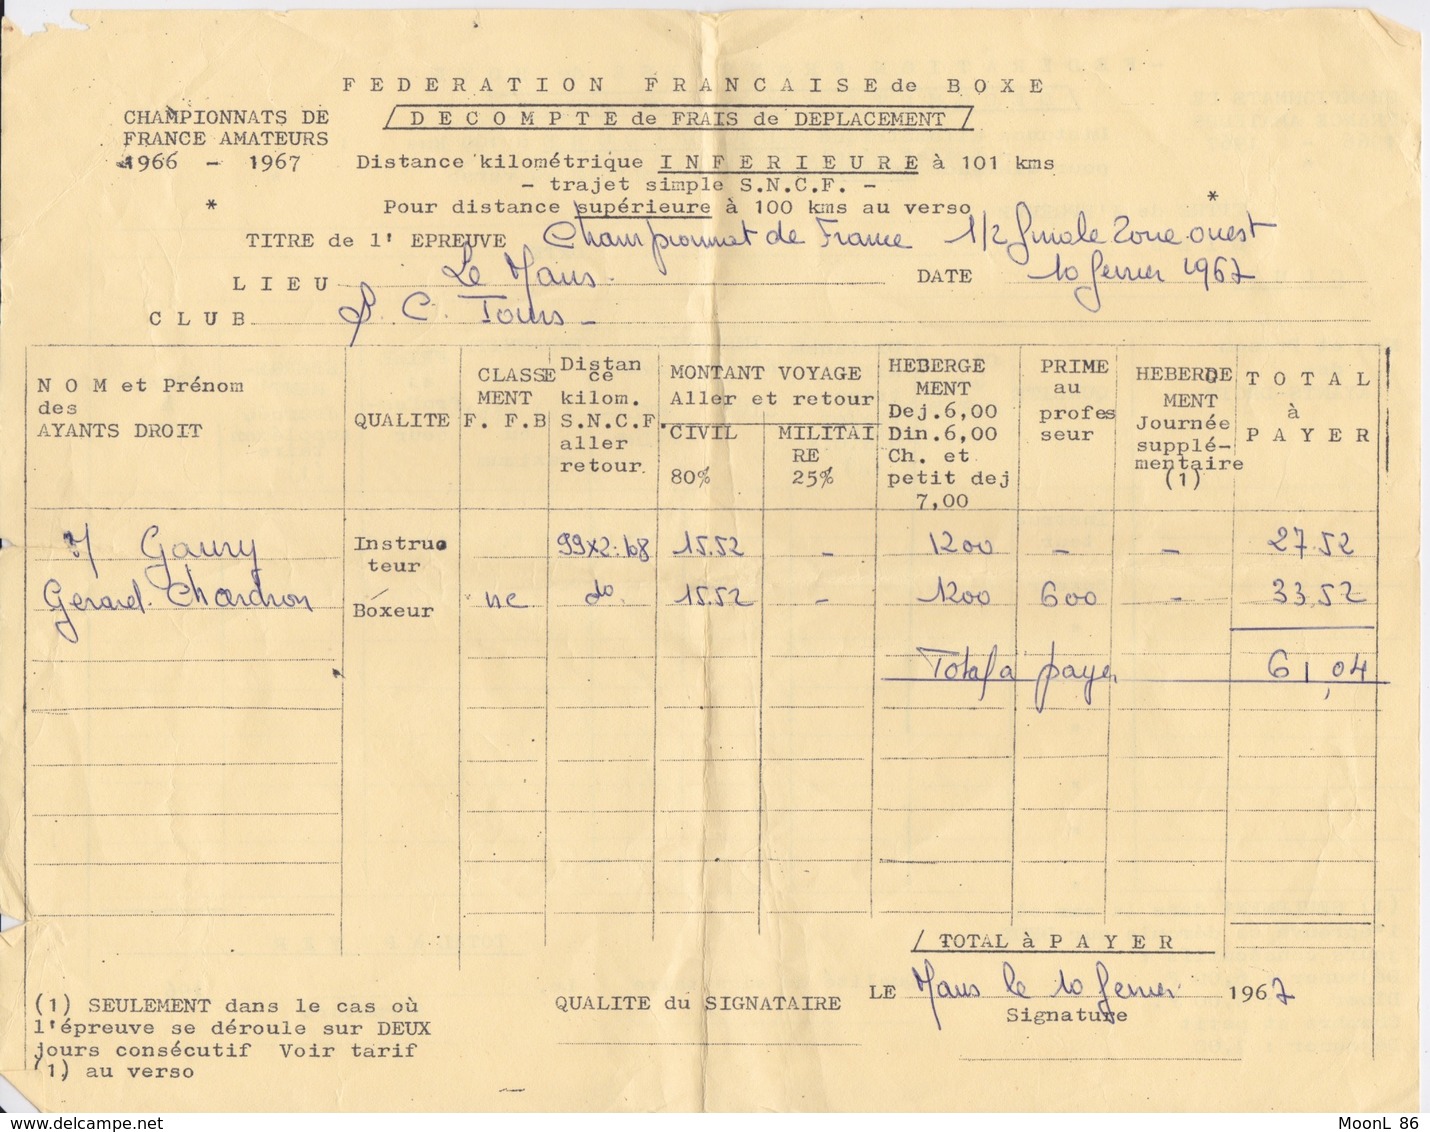 FEDERATION FRANCAISE de BOXE
CHAMPIONNATS DE
FRANCE AMATEURS
1966 - 1967
DECOMPTE de FRAIS de DEPLACEMENT
Distance kilométrique INFERIEURE à 101 kms
- trajet simple S.N.C.F. -
* Pour distance supérieure à 100 kms au verso *
TITRE de l' EPREUVE Championnat de France 1/2 finale Zone ouest
LIEU Le Mans. DATE 10 février 1967
CLUB C. Tours -
NOM et Prénom
des
AYANTS DROIT
QUALITE
CLASSE
MENT
F. F.B
Distan
ce
kilom.
S.N.C.F.
aller
retour.
MONTANT VOYAGE
Aller et retour
CIVIL
80%
MILITAI
RE
25%
HEBERGE
MENT
Dej.6,00
Din.6,00
Ch. et
petit dej
7,00
PRIME
au
profes
seur
HEBERGE
MENT
Journée
supplé-
mentaire
(1)
TOTAL
à
PAYER
M Gaury Instruc
teur 99x2: 15.52 - 1200 - - 27.52
Gerard. Chardron Boxeur nc do. 15.52 - 1200 600 - 33,52
Total a payer 61,04
/ TOTAL à PAYER
(1) SEULEMENT dans le cas où
l'épreuve se déroule sur DEUX
jours consécutif Voir tarif
(1) au verso
QUALITE du SIGNATAIRE
LE Mans le 10 février 1967
Signature
MoonL 86